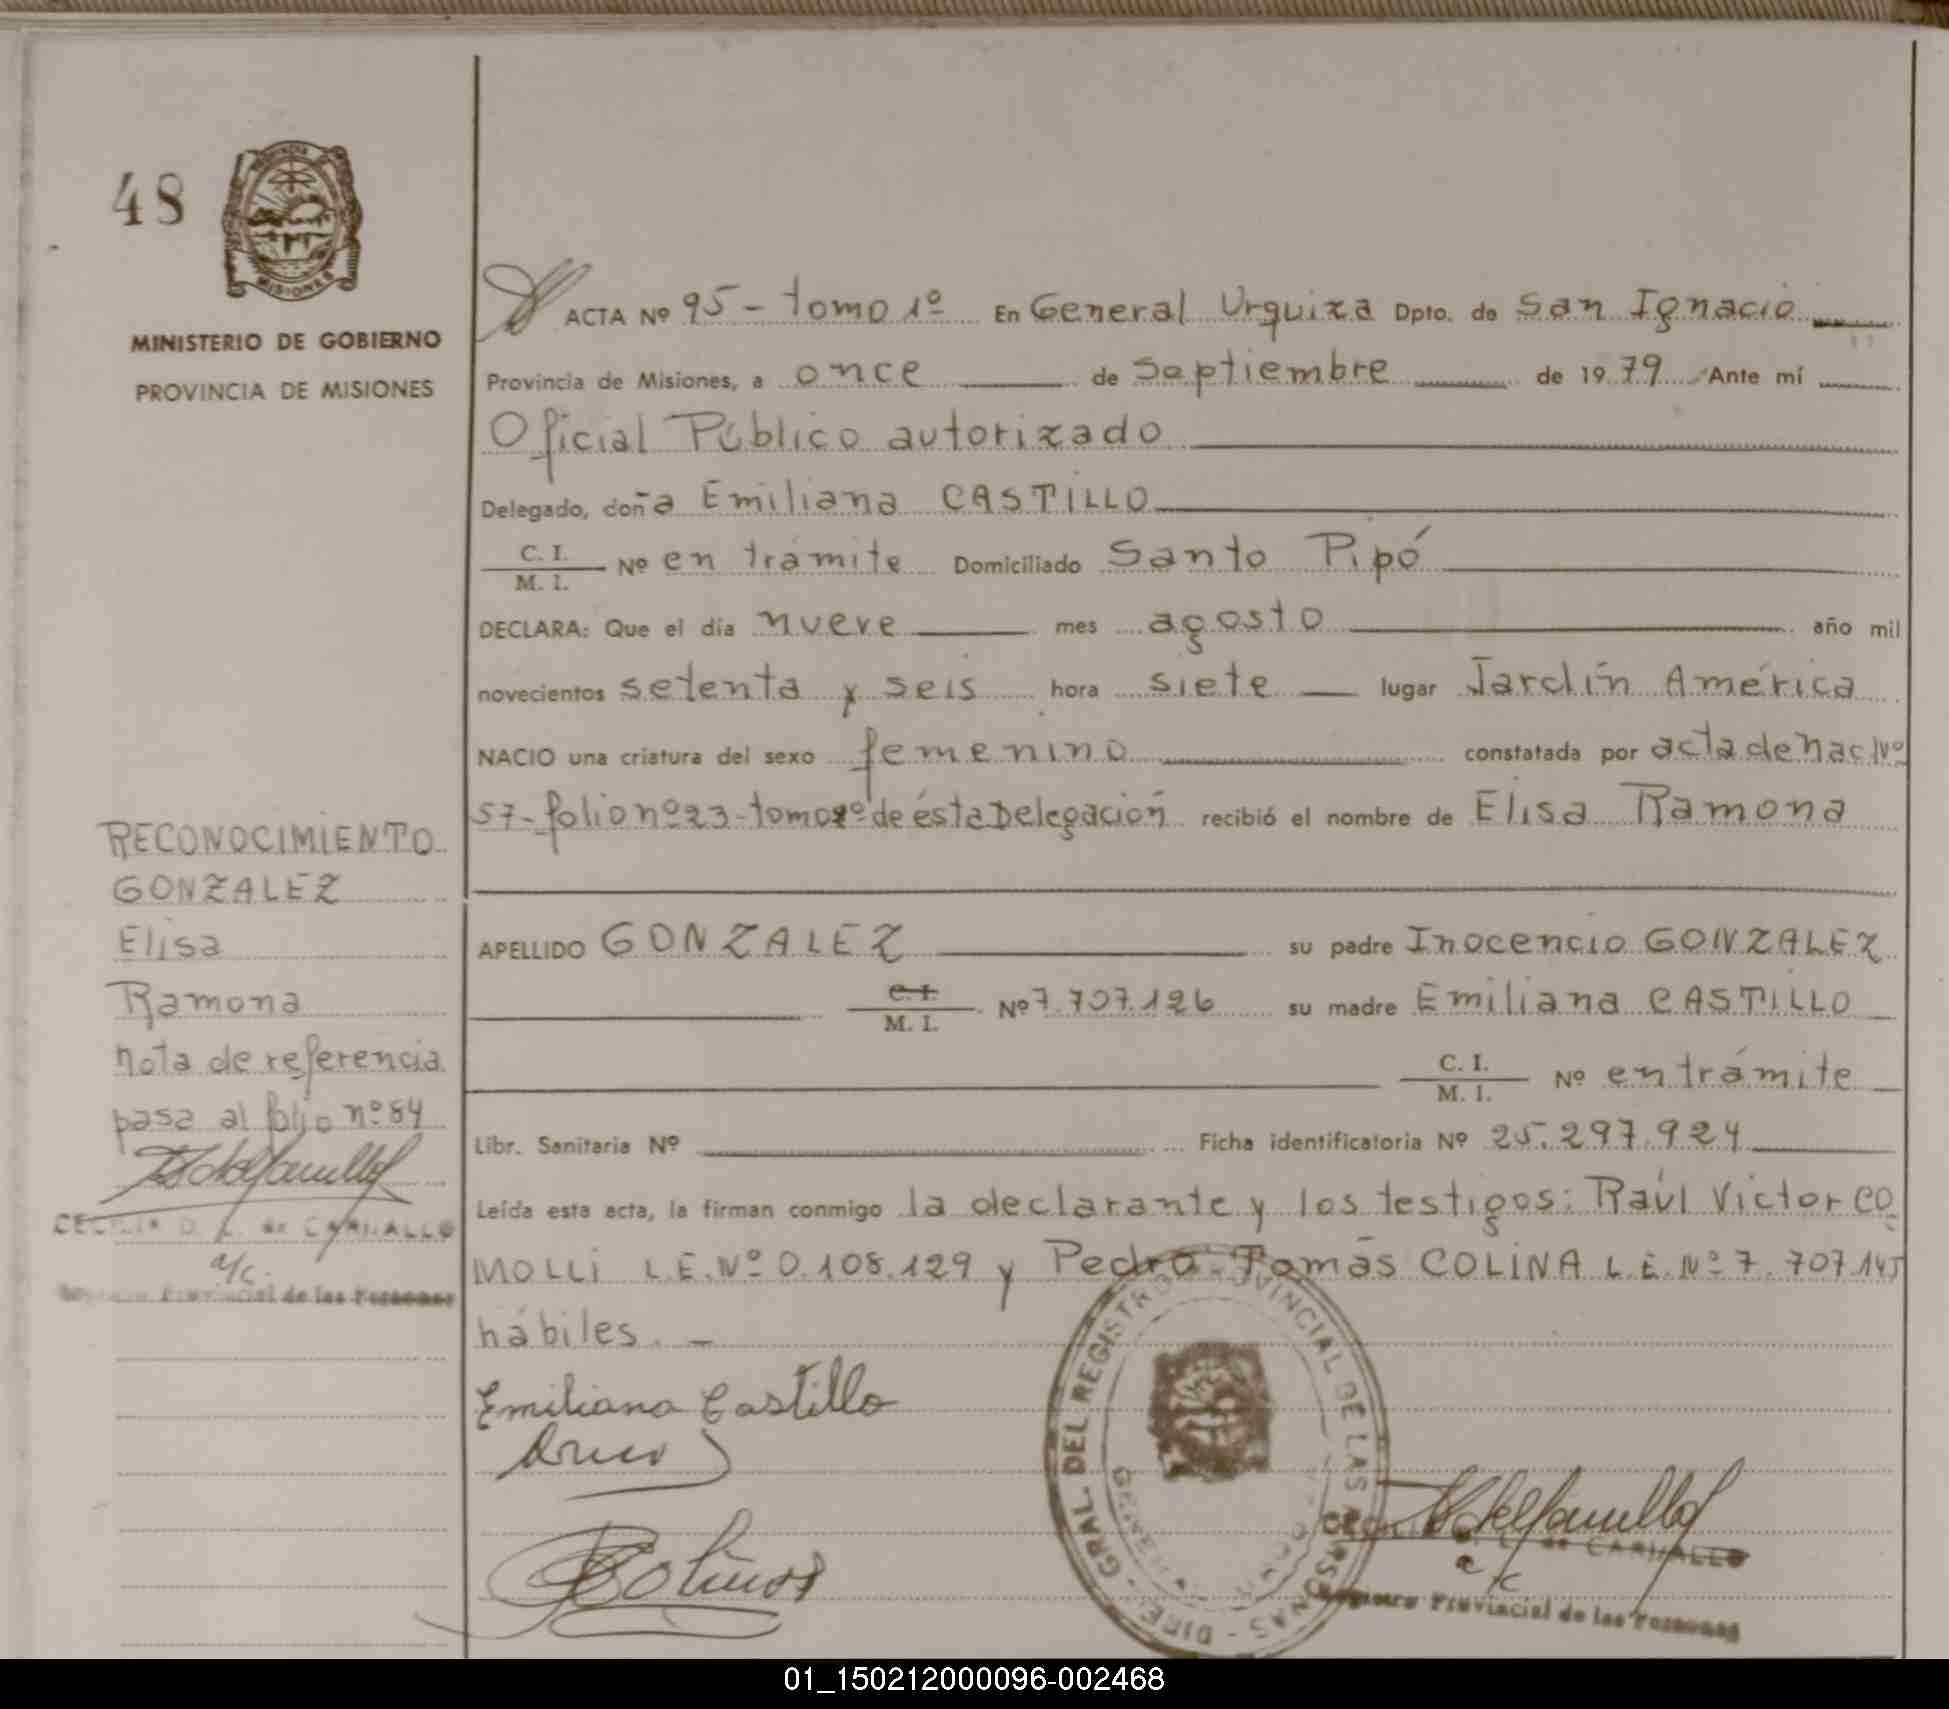 48
MISIONES
MINISTERIO DE GOBIERNO
PROVINCIA DE MISIONES
ACTA Nº 95 - tomo 1º En General Urquiza Dpto. de San Ignacio
Provincia de Misiones, a once de Septiembre de 1979 Ante mí
Oficial Público autorizado
Delegado, doña Emiliana CASTILLO
C. I.
M. I. Nº en trámite Domiciliado Santo Pipó
DECLARA: Que el día nueve mes agosto año mil
novecientos setenta y seis hora siete lugar Jardín América
NACIO una criatura del sexo femenino constatada por acta de nac Nº
57-folio nº 23-tomo de ésta Delegación recibió el nombre de Elisa Ramona
APELLIDO GONZALEZ su padre Inocencio GONZALEZ
C. I.
M. I. Nº 7.707.126 su madre Emiliana CASTILLO
C. I.
M. I. Nº en trámite
Libr. Sanitaria Nº Ficha identificatoria Nº 25.297.924
Leída esta acta, la firman conmigo la declarante y los testigos: Raúl Victor CO
MOLLI L.E. Nº 0.108.129 y Pedro Tomás COLINA L.E. Nº 7.707.145
hábiles. -
Emiliana Castillo
RECONOCIMIENTO
GONZALEZ
Elisa
Ramona
nota de referencia
pasa al folio nº 84
CECILIA D. L. de CARVALLO
a/c.
Registro Provincial de las Personas
DIRE. GRAL. DEL REGISTRO PROVINCIAL DE LAS PERSONAS
de CARVALLO
a/c
Registro Provincial de las Personas
01_150212000096-002468